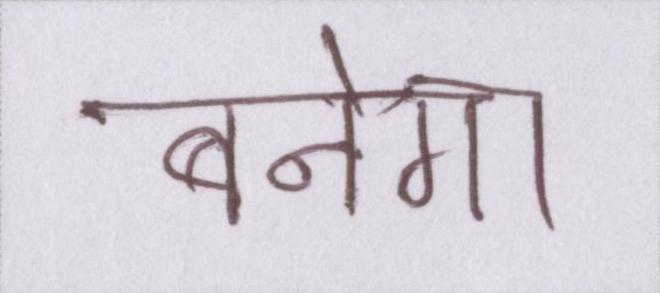 बनेगा